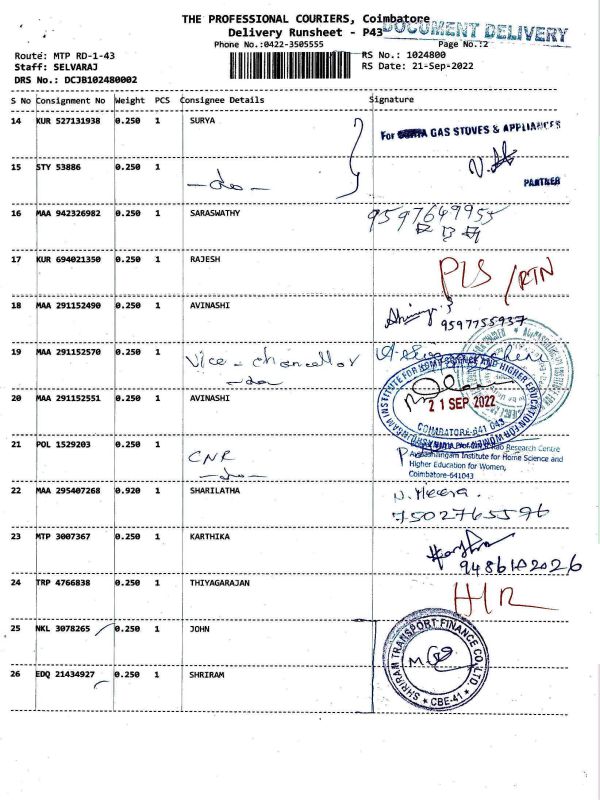 THE PROFESSIONAL COURIERS, Coimbatore
DOCUMENT DELIVERY
Delivery Runsheet - P43
Phone No.:0422-3505555
Page No.:2
Route: MTP RD-1-43
RS No.: 1024800
Staff: SELVARAJ
RS Date: 21-Sep-2022
DRS No.: DCJB102480002
S No Consignment No Weight PCS Consignee Details Signature
14 KUR 527131938 0.250 1 SURYA
For GAS STOVES & APPLIANCES
PARTNER
15 STY 53886 0.250 1
-do-
16 MAA 942326982 0.250 1 SARASWATHY
9597649955
17 KUR 694021350 0.250 1 RAJESH
PLS /RTN
18 MAA 291152490 0.250 1 AVINASHI
9597755937
19 MAA 291152570 0.250 1
Vice-chancellor
-do-
20 MAA 291152551 0.250 1 AVINASHI
INSTITUTE FOR HOME SCIENCE AND HIGHER EDUCATION FOR WOMEN
21 SEP 2022
COIMBATORE-641 043
21 POL 1529203 0.250 1
CNR
-do-
Research Centre
Avinashilingam Institute for Home Science and
Higher Education for Women,
Coimbatore-641043
22 MAA 295407268 0.920 1 SHARILATHA
N. Meena.
7502765596
23 MTP 3007367 0.250 1 KARTHIKA
24 TRP 4766838 0.250 1 THIYAGARAJAN
25 NKL 3078265 0.250 1 JOHN
26 EDQ 21434927 0.250 1 SHRIRAM
SHRIRAM TRANSPORT FINANCE CO. LTD
* CBE-41 *